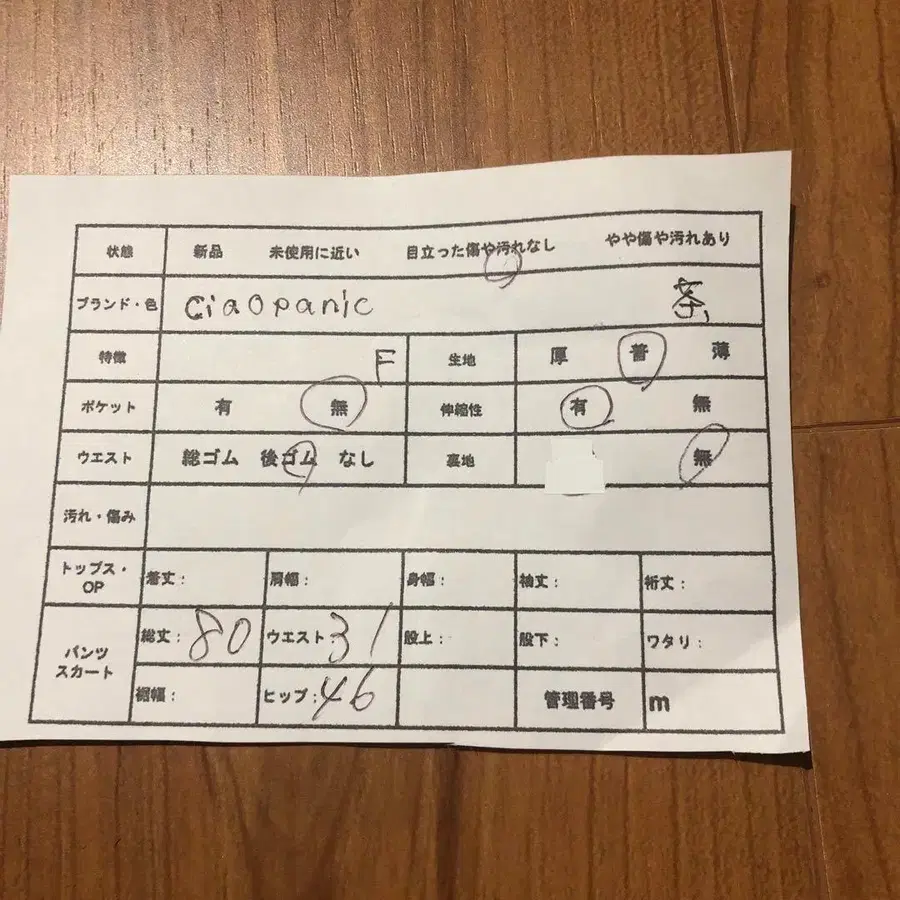 状態 新品 未使用に近い 目立った傷や汚れなし やや傷や汚れあり
ブランド・色 ciaopanic 茶
特徴 F 生地 厚 普 薄
ポケット 有 無 伸縮性 有 無
ウエスト 総ゴム 後ゴム なし 裏地 無
汚れ・傷み
トップス・OP 着丈: 肩幅: 身幅: 袖丈: 裄丈:
パンツ スカート 総丈:80 ウエスト:31 股上: 股下: ワタリ:
裾幅: ヒップ:46 管理番号 m